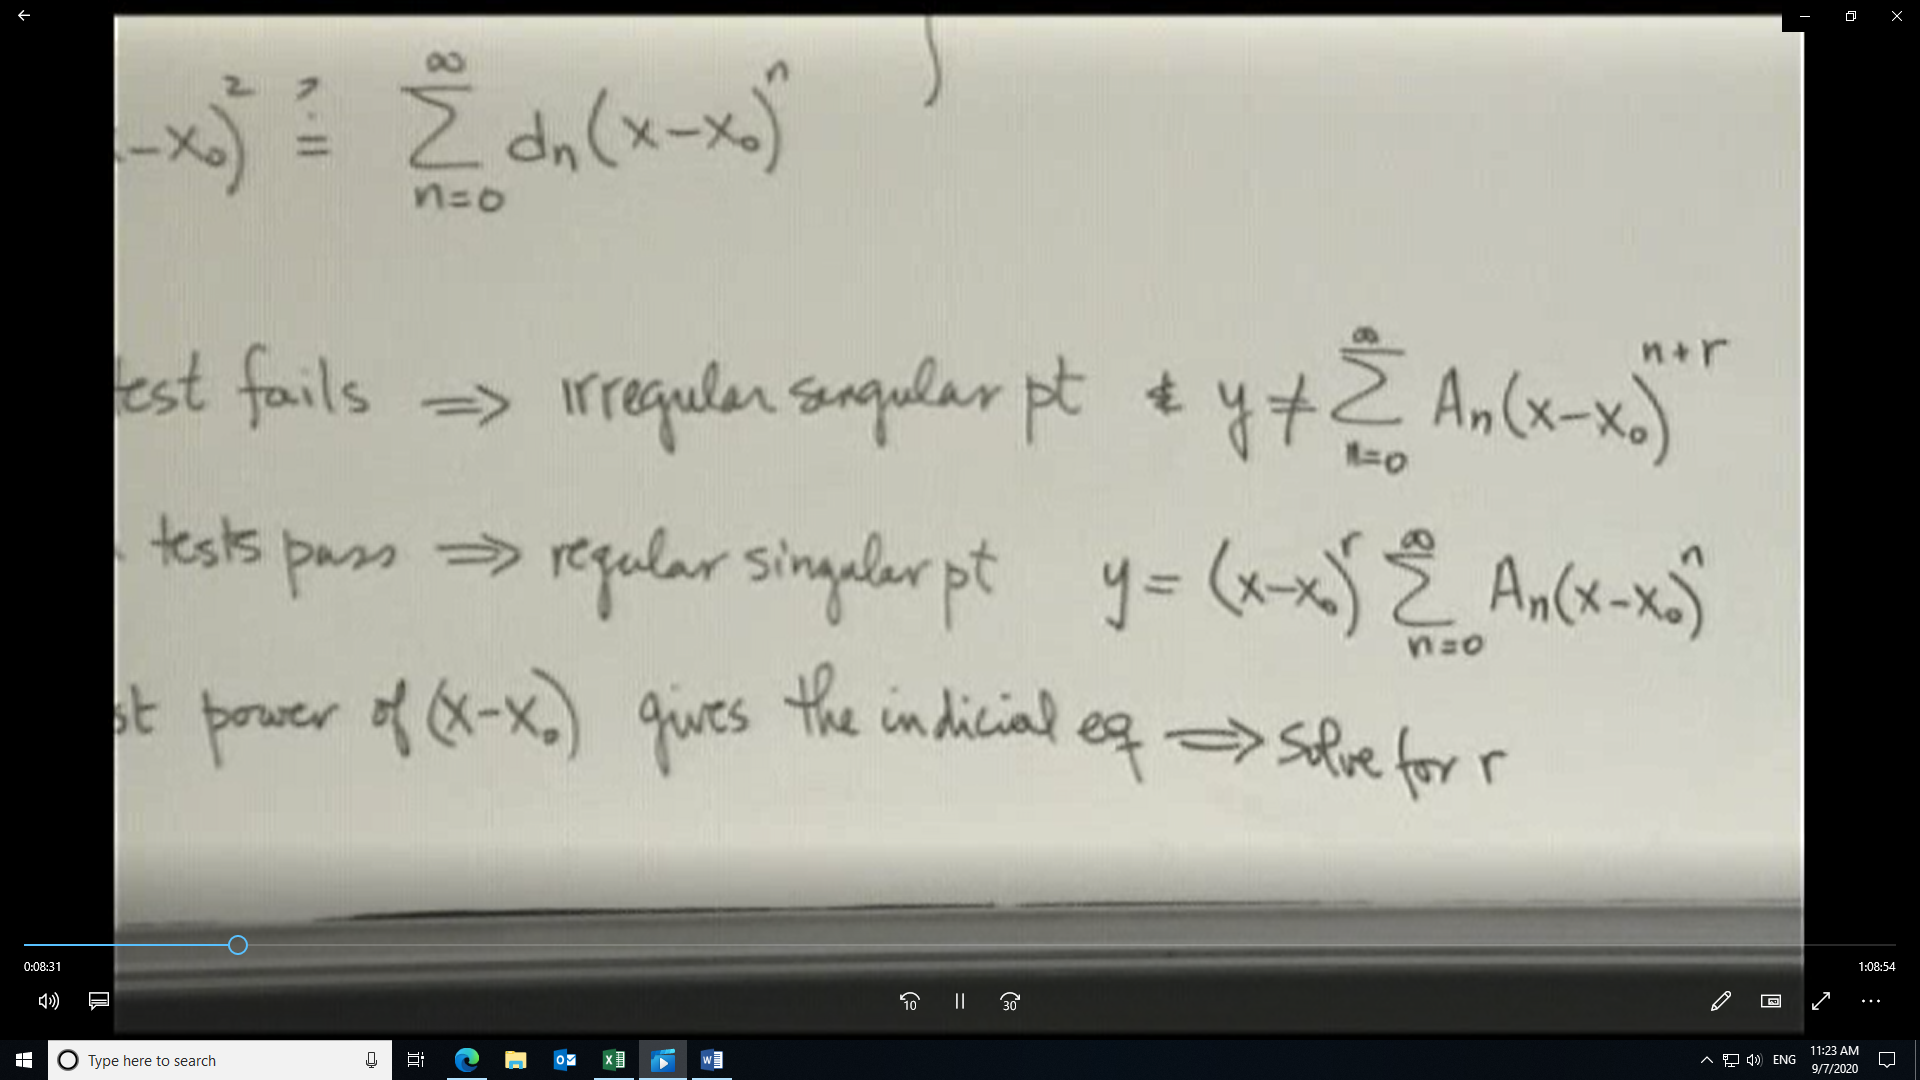 -x₀)² ≟ ∞∑n=0 dₙ(x-x₀)ⁿ }
test fails ⟹ irregular singular pt & y ≠ ∞∑n=0 Aₙ(x-x₀)ⁿ⁺ʳ
tests pass ⟹ regular singular pt y = (x-x₀)ʳ ∞∑n=0 Aₙ(x-x₀)ⁿ
st power of (x-x₀) gives the indicial eq ⟹ solve for r
0:08:31 1:08:54
10 30
Type here to search ENG 11:23 AM
9/7/2020